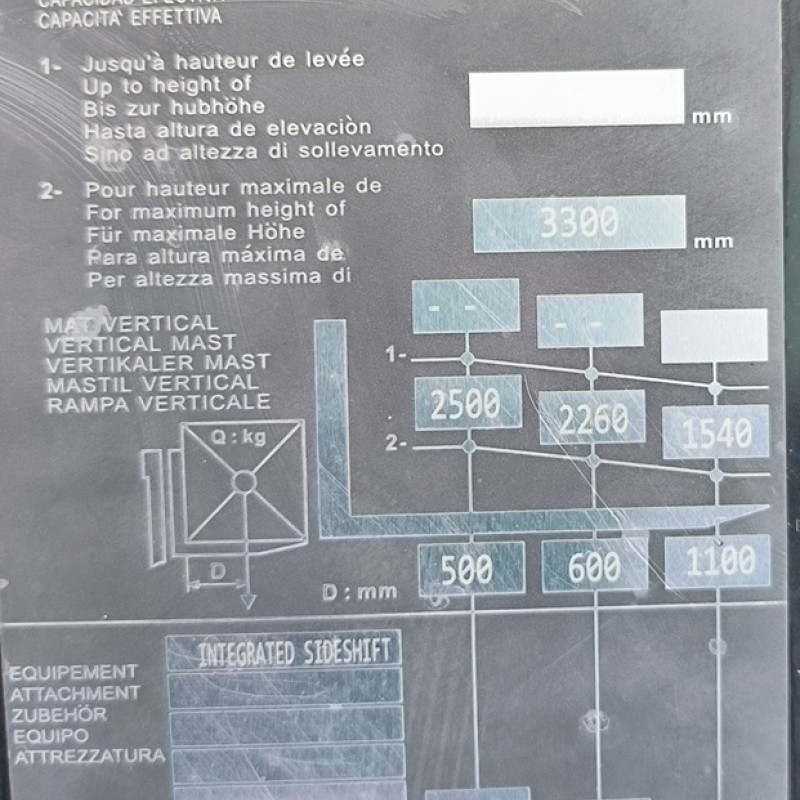 CAPACITA' EFFETTIVA
1- Jusqu'à hauteur de levée
Up to height of
Bis zur hubhöhe
Hasta altura de elevaciòn
Sino ad altezza di sollevamento
mm
2- Pour hauteur maximale de
For maximum height of
Für maximale Höhe
Para altura máxima de
Per altezza massima di
3300
mm
MAT VERTICAL
VERTICAL MAST
VERTIKALER MAST
MASTIL VERTICAL
RAMPA VERTICALE
- -
- -
1-
2500
2260
1540
2-
Q : kg
D
D : mm
500
600
1100
EQUIPEMENT
ATTACHMENT
ZUBEHÖR
EQUIPO
ATTREZZATURA
INTEGRATED SIDESHIFT